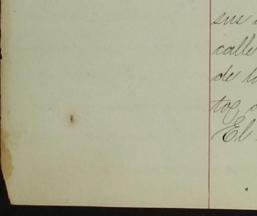 sus
calle
de lo
tos
El